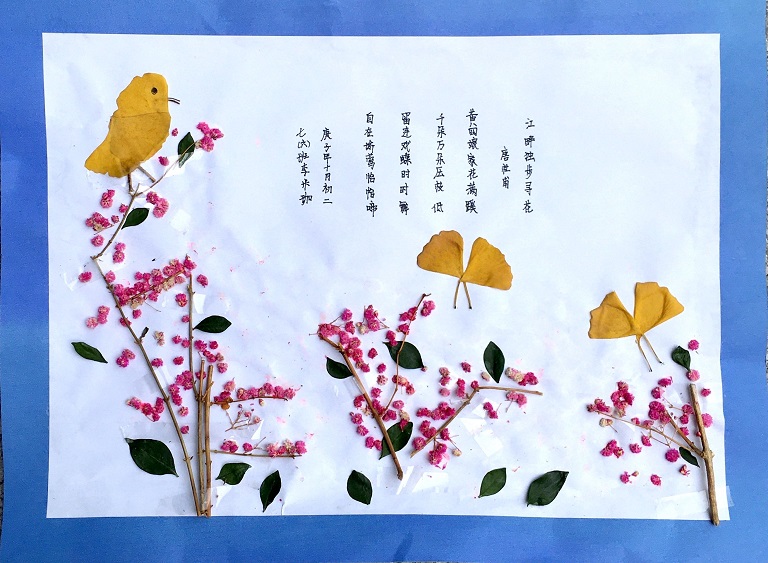 江畔独步寻花
唐杜甫
黄四娘家花满蹊
千朵万朵压枝低
留连戏蝶时时舞
自在娇莺恰恰啼
庚子年十月初二
七(六)班李